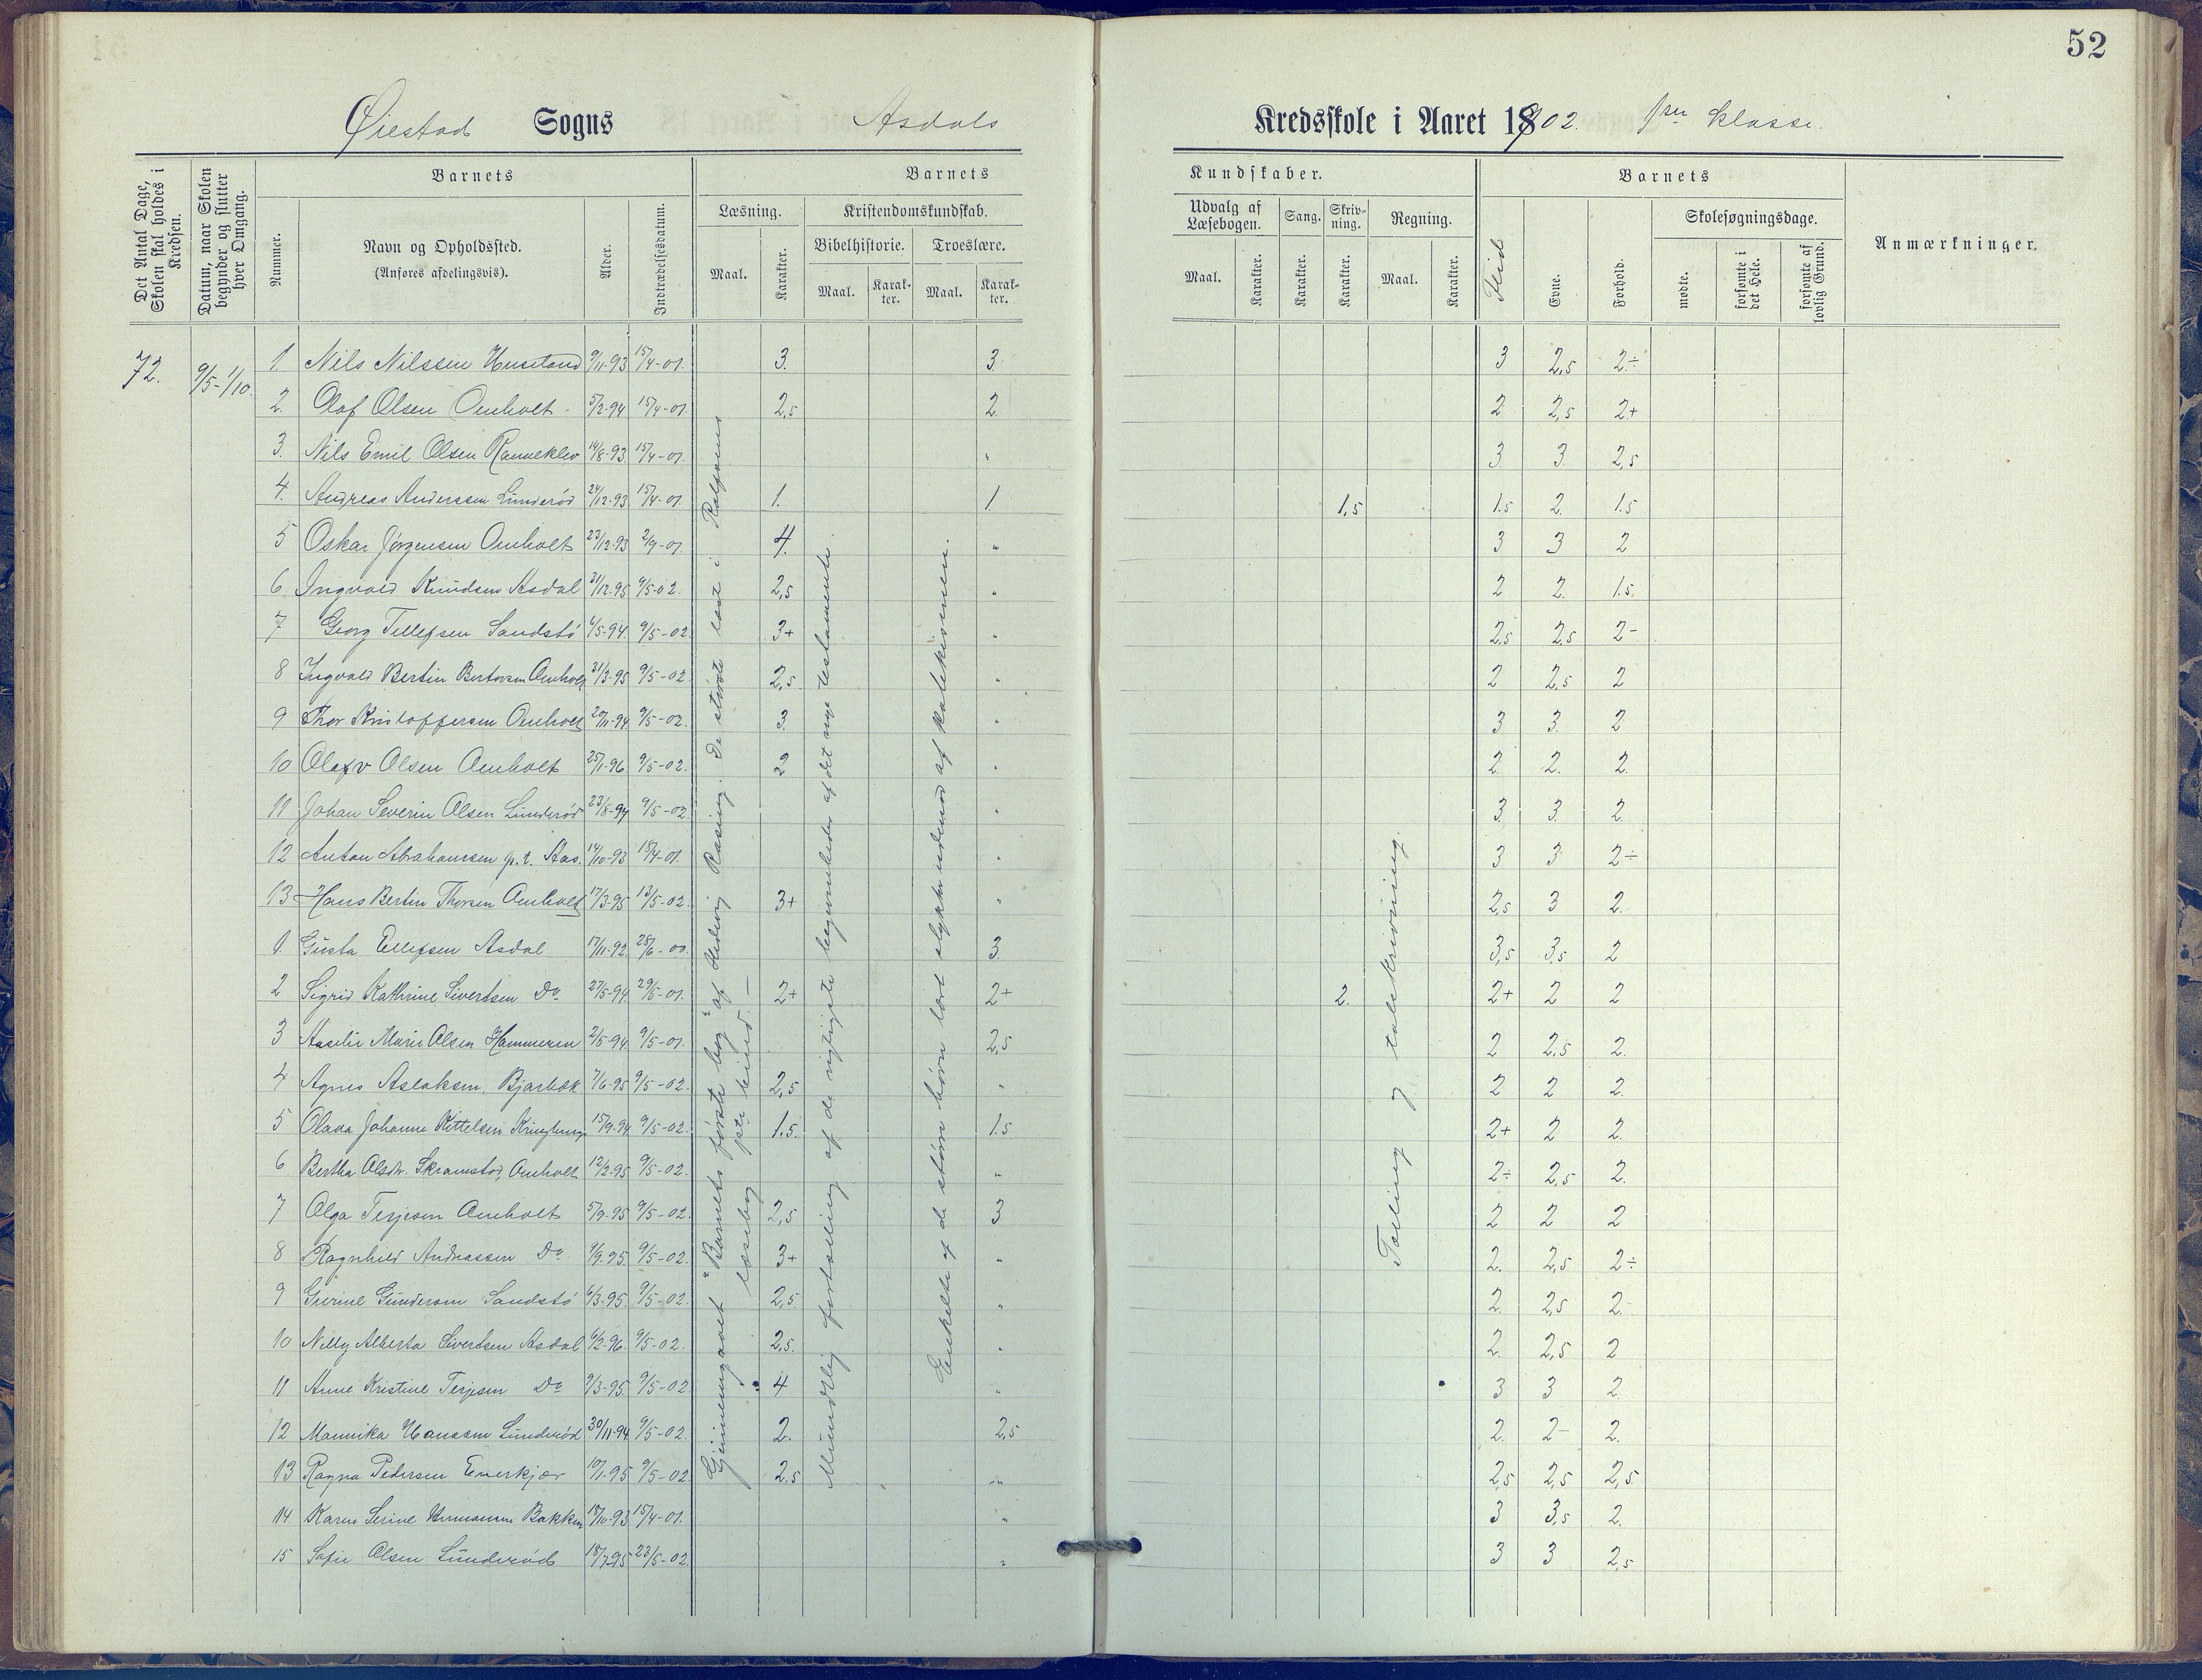 52
Øiestad Sogns Asdals Kredsskole i Aaret 1902. 1ste klasse.
Det Antal Dage, Skolen skal holdes i Kredsen.
Datum, naar Skolen begynder og slutter hver Omgang.
Barnets
Nummer.
Navn og Opholdssted.
(Anføres afdelingsvis).
Alder.
Indtrædelsesdatum.
Barnets Kundskaber.
Læsning.
Maal. Karakter.
Kristendomskundskab.
Bibelhistorie. Troeslære.
Maal. Karakter. Maal. Karakter.
Udvalg af Læsebogen.
Maal. Karakter.
Sang.
Karakter.
Skrivning.
Karakter.
Regning.
Maal. Karakter.
Barnets
Flid Evne. Forhold.
Skolesøgningsdage.
mødte. forsømte i det Hele. forsømte af lovlig Grund.
Anmærkninger.
72. 9/5-1/10.
1. Nils Nilssen 9/11-93 15/4-01. 3. 3. 3 2,5 2÷
2. Olaf Olsen Omholt 5/2-94 15/4-01. 2,5 2. 2 2,5 2+
3. Nils Emil Olsen Ranneklev 14/8-93. 15/4-01. " 3. 3. 2,5
4. Andreas Anderssen Lunderød 24/12-93 15/4-01. 1. 1. 1,5 1.5 2. 1.5
5 Oskar Jørgensen Omholt 23/12-93 2/9-01. 4. " 3 3 2
6 Ingvald Knudsen Asdal 31/12-95 9/5-02. 2,5 " 2 2. 1.5.
7 Georg Tellefsen Sandstø /5-94. 9/5-02. 3+ " 2,5 2,5 2-
8 Ingvald Bertin Omholt 31/3-95 9/5-02. 2,5. " 2 2,5 2
9 Thor Kristoffersen Omholt 20/11-94. 9/5-02. 3. " 3 3. 2
10 Olav Olsen Omholt 25/1-96. 9/5-02. 2 " 2. 2. 2.
11 Johan Severin Olsen Lunderød 23/8-94 9/5-02. " 3. 3. 2.
12 Anton Abrahamsen p.t. Aas. 14/10-93 15/4-01. " 3 3 2÷
13 Hans Bertin Thorsen Omholt 17/3-95 13/5-02. 3+ " 2,5 3 2.
1. Gusta Ellefsen Asdal 17/11-92. 28/6-00. 3. 3,5 3,5 2
2 Sigrid Kathrine Sivertsen Do 27/5-94. 29/5-01. 2+ 2+ 2. 2+ 2 2
3 Aaselie Marie Olsen Hammeren 2/5-94 9/5-01. 2,5 2 2,5 2.
4 Agnes Aslaksen, Bjørbæk 7/6-95 9/5-02. 2,5 " 2 2 2.
5 Olava Johanne Kittelsen 15/9-94 9/5-02. 1.5. 1.5 2+ 2 2.
6 Bertha Olsdtr. Skramstad, Omholt 12/2-95 9/5-02. " 2÷ 2,5 2.
7 Olga Terjesen Omholt 5/9-95 9/5-02. 2,5 3 2 2 2
8 Ragnhild Andreassen Do 9/9-95. 9/5-02. 3+ " 2. 2,5 2÷
9 Gurine Gundersen Sandstø 6/3-95. 9/5-02. 2,5. " 2. 2,5 2.-
10 Nelly Alberta Sivertsen Asdal 6/2-96. 9/5-02. 2,5. " 2. 2,5 2
11 Anne Kristine Terjesen Do 9/3-95. 9/5-02. 4 " 3 3 2.
12 Mannika Hanssen Lunderød 30/11-94. 9/5-02. 2. 2,5 2. 2- 2.
13 Ragna Pedersen Everkjær 10/1-95 9/5-02. 2,5 " 2,5 2,5 2,5
14 Karen Serine Hermansen Bakken 18/10-93 15/4-01. " 3 3,5 2.
15 Sofie Olsen Lunderød 18/7-95 23/5-02. " 3 3 2,5
Gjennemgaaet "Barnets første bog" af Rasing. De største læst i Rolfsens læsebog 1ste bind.
Mundtlig fortælling af de vigtigste begivenheder af det nye testamente.
Enkelte af de større børn lært stykker udenad af katekismen.
Tælling og talskrivning.